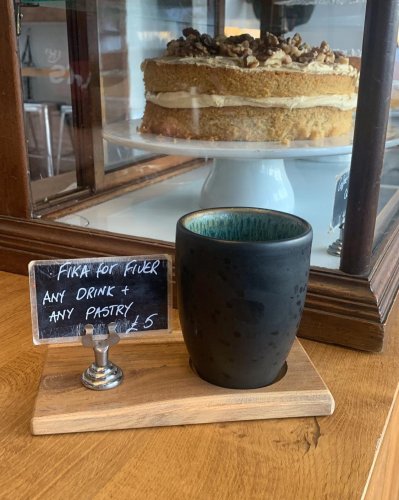 FIKA for FIVER
ANY DRINK +
ANY PASTRY
£5